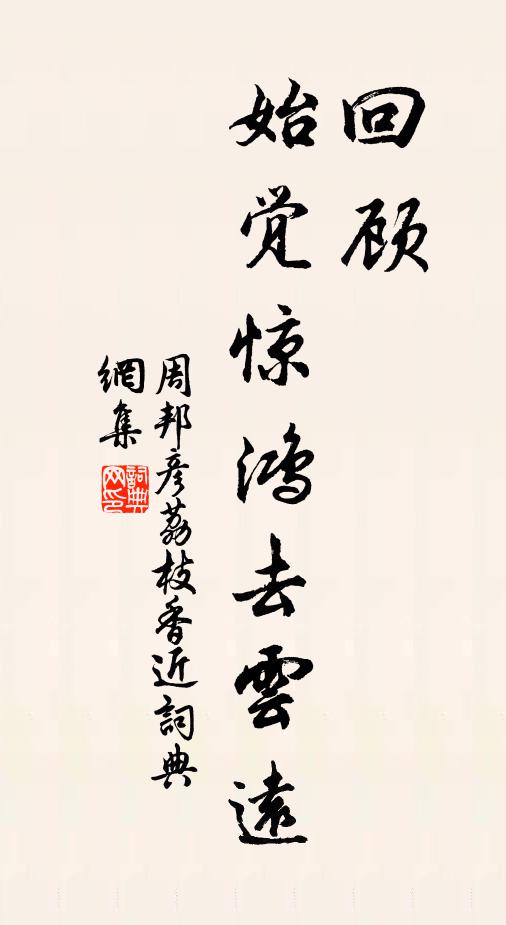 回顾
始觉惊鸿去雲遠
周邦彦荔枝香近詞典
網集
詞典
网印